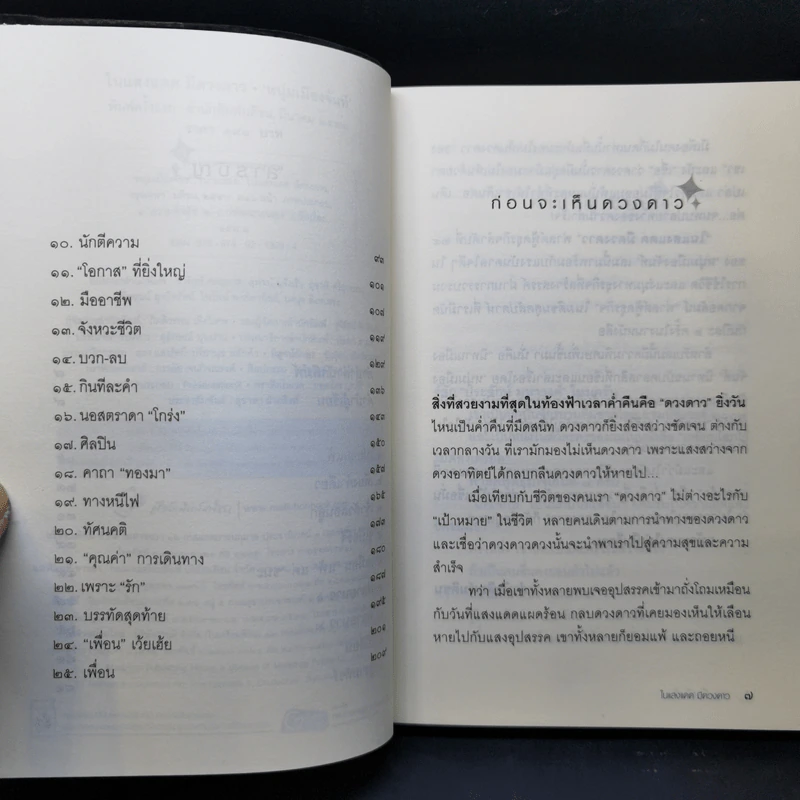 ๑๐. นักตีความ ๙๓
๑๑. “โอกาส” ที่ยิ่งใหญ่ ๑๐๑
๑๒. มืออาชีพ
๑๓. จังหวะชีวิต ๑๑๙
๑๔. บวก-ลบ ๑๒๙
๑๕. กินทีละคำ ๑๓๖
๑๖. นอสตราดา “โกร่ง” ๑๔๓
๑๗. ศิลปิน ๑๕๐
๑๘. คาถา “ทองมา”
๑๙. ทางหนีไฟ ๑๖๕
๒๐. ทัศนคติ ๑๗๓
๒๑. “คุณค่า” การเดินทาง ๑๘๐
๒๒. เพราะ “รัก” ๑๘๗
๒๓. บรรทัดสุดท้าย ๑๙๕
๒๔. “เพื่อน” เว้ยเฮ้ย ๒๐๑
๒๕. เพื่อน ๒๐๙
ก่อนจะเห็นดวงดาว
สิ่งที่สวยงามที่สุดในท้องฟ้าเวลาค่ำคืนคือ “ดวงดาว” ยิ่งวัน
ไหนเป็นค่ำคืนที่มืดสนิท ดวงดาวก็ยิ่งส่องสว่างชัดเจน ต่างกับ
เวลากลางวัน ที่เรามักมองไม่เห็นดวงดาว เพราะแสงสว่างจาก
ดวงอาทิตย์ได้กลบกลืนดวงดาวให้หายไป...
เมื่อเทียบกับชีวิตของคนเรา “ดวงดาว” ไม่ต่างอะไรกับ
“เป้าหมาย” ในชีวิต หลายคนเดินตามการนำทางของดวงดาว
และเชื่อว่าดวงดาวดวงนั้นจะนำพาเราไปสู่ความสุขและความ
สำเร็จ
ทว่า เมื่อเขาทั้งหลายพบเจออุปสรรคเข้ามาถั่งโถมเหมือน
กับวันที่แสงแดดแผดร้อน กลบดวงดาวที่เคยมองเห็นให้เลือน
หายไปกับแสงอุปสรรค เขาทั้งหลายก็ยอมแพ้ และถอยหนี
ในแสงแดด มีดวงดาว ๗